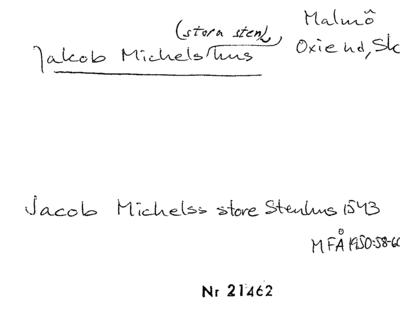 Malmö
(stora sten)
Jakob Michels hus
Oxie hd, Sk
Jacob Michelss store Stenhus 1543
MFÅ 1950:58-60
Nr 21462